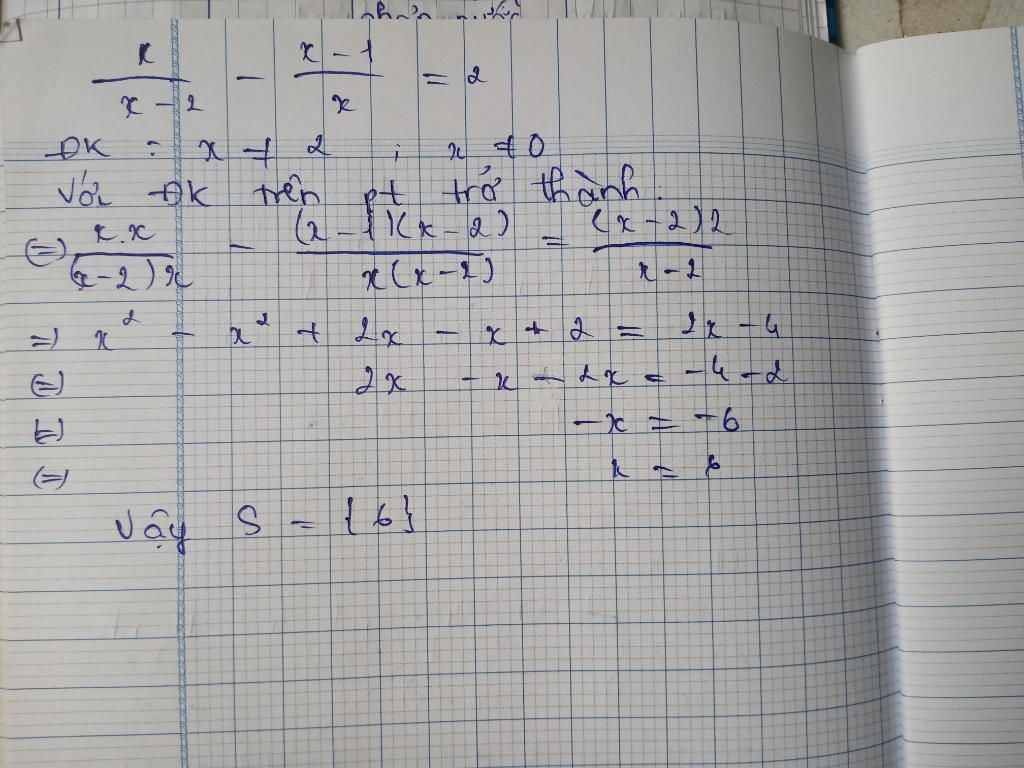 x/(x - 2) - (x - 1)/x = 2
ĐK : x ≠ 2 ; x ≠ 0
Với ĐK trên pt trở thành.
(=) x.x/((x-2)x) - (x - 1)(x - 2)/(x(x - 2)) = (x - 2)2/(x - 2)
=) x² - x² + 2x - x + 2 = 2x - 4
(=) 2x - x - 2x = -4 - 2
(=) -x = -6
(=) x = 6
Vậy S = {6}